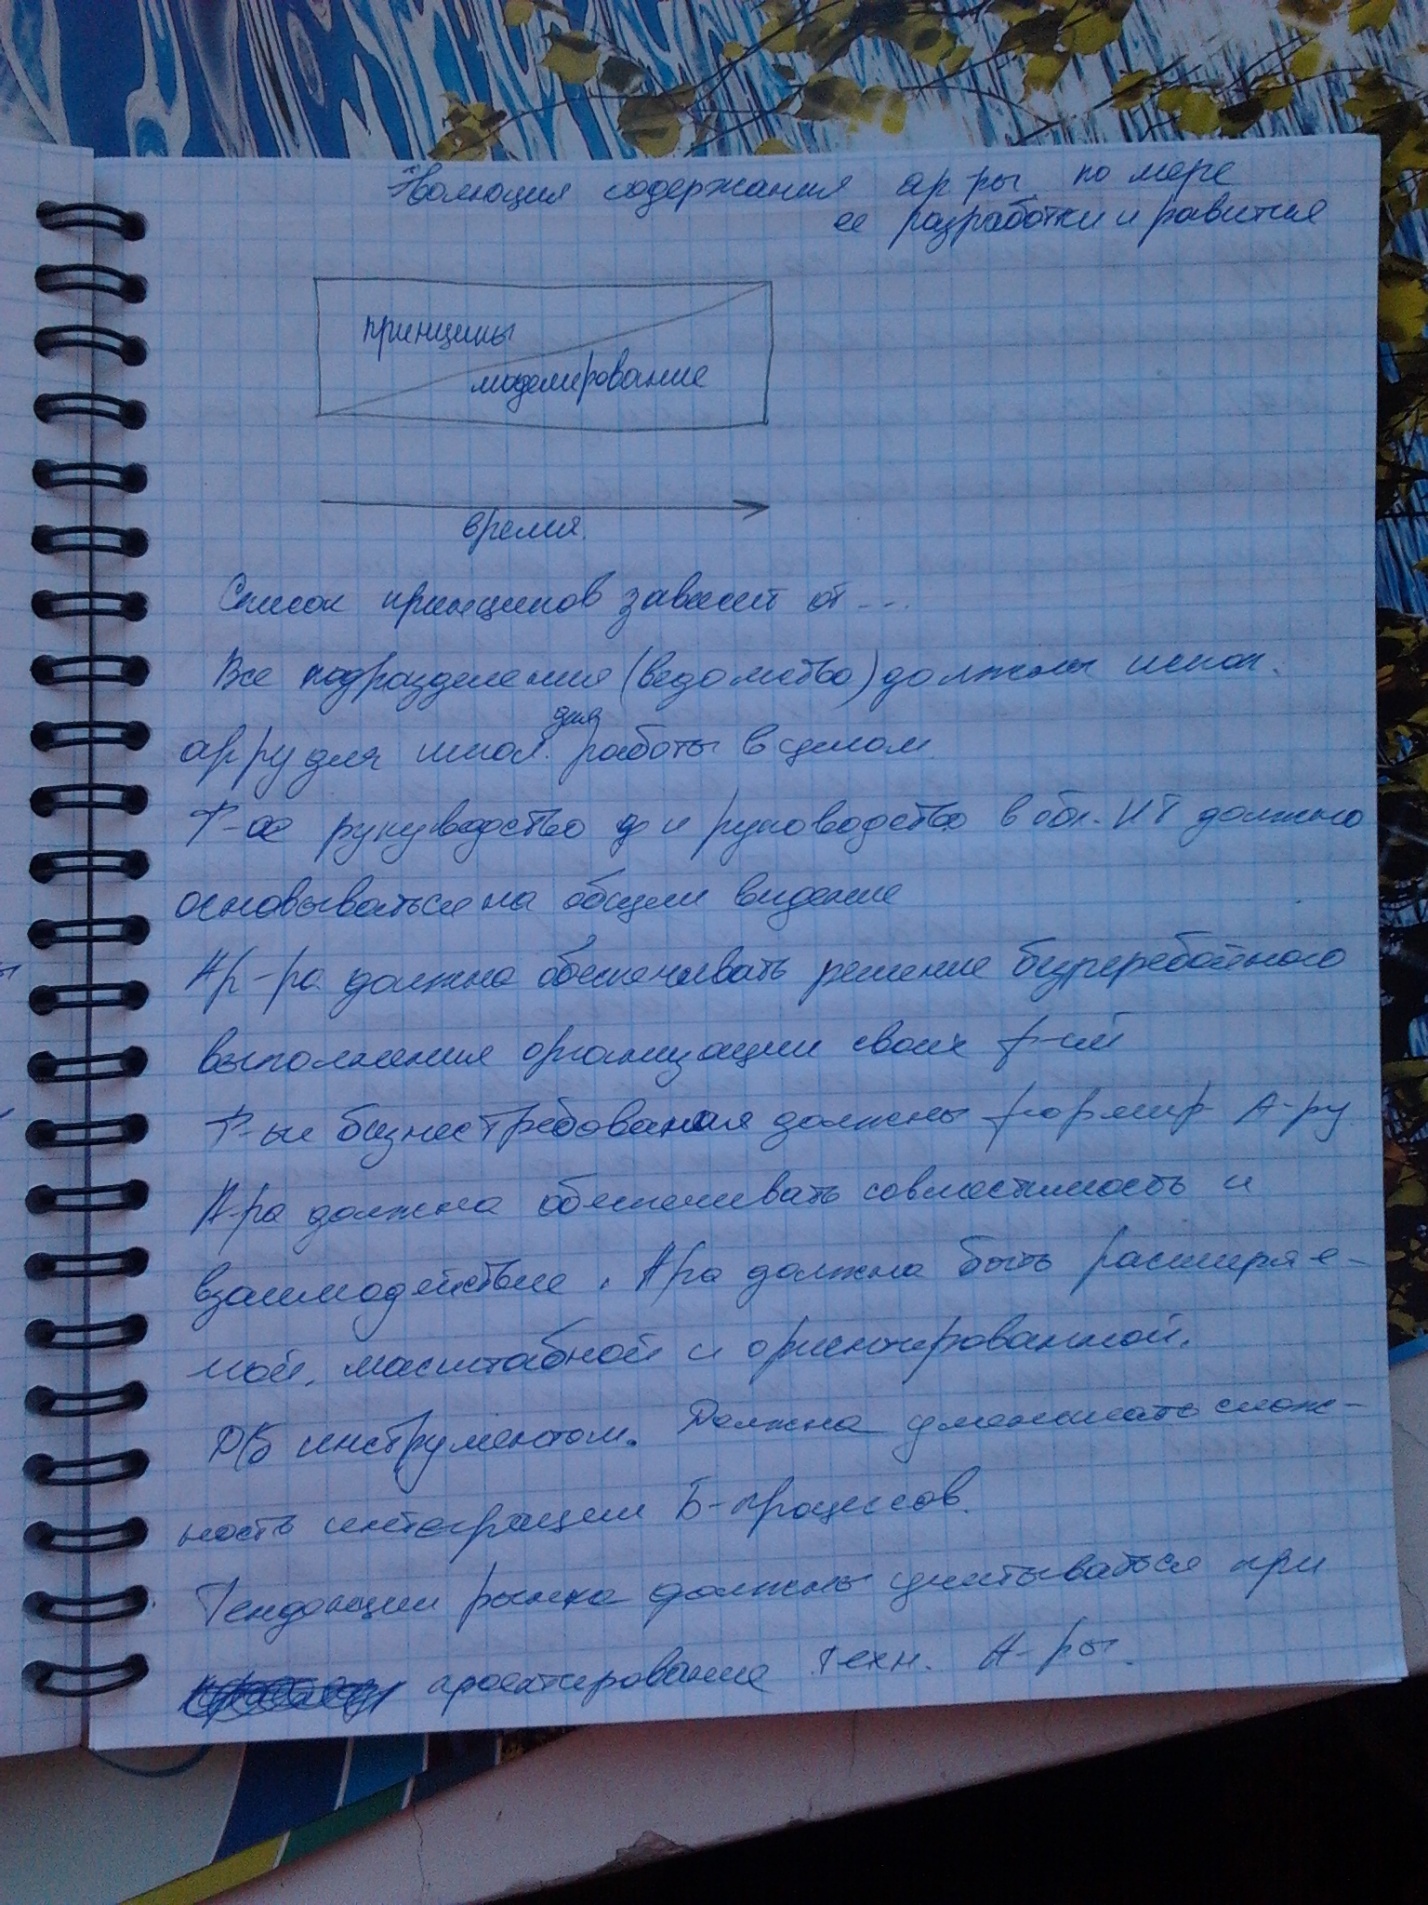 Эволюция содержания ар ры по мере
ее разработки и равития
принципы
моделирование
время.
Список принципов зависит от ...
Все подразделения (ведомство) должны испол.
ар ру для испол. для работы в целом.
руководство и руководство в обл. ИТ должно
основываться на общем видение
Ар-ра должна обеспечивать решение безперебойного
выполнения организации своих ф-ий
Ф-ые бизнес требования должны формир А-ру
А-ра должна обеспечивать совместимость и
взаимодействие. А ра должна быть расширяе-
мой, масштабной и ориентированной.
Д/б инструментом. Должна уменьшать слож-
ность интеграции Б-процессов.
Тенденции рынка должны учитываться при
проектирование техн. А-ры.